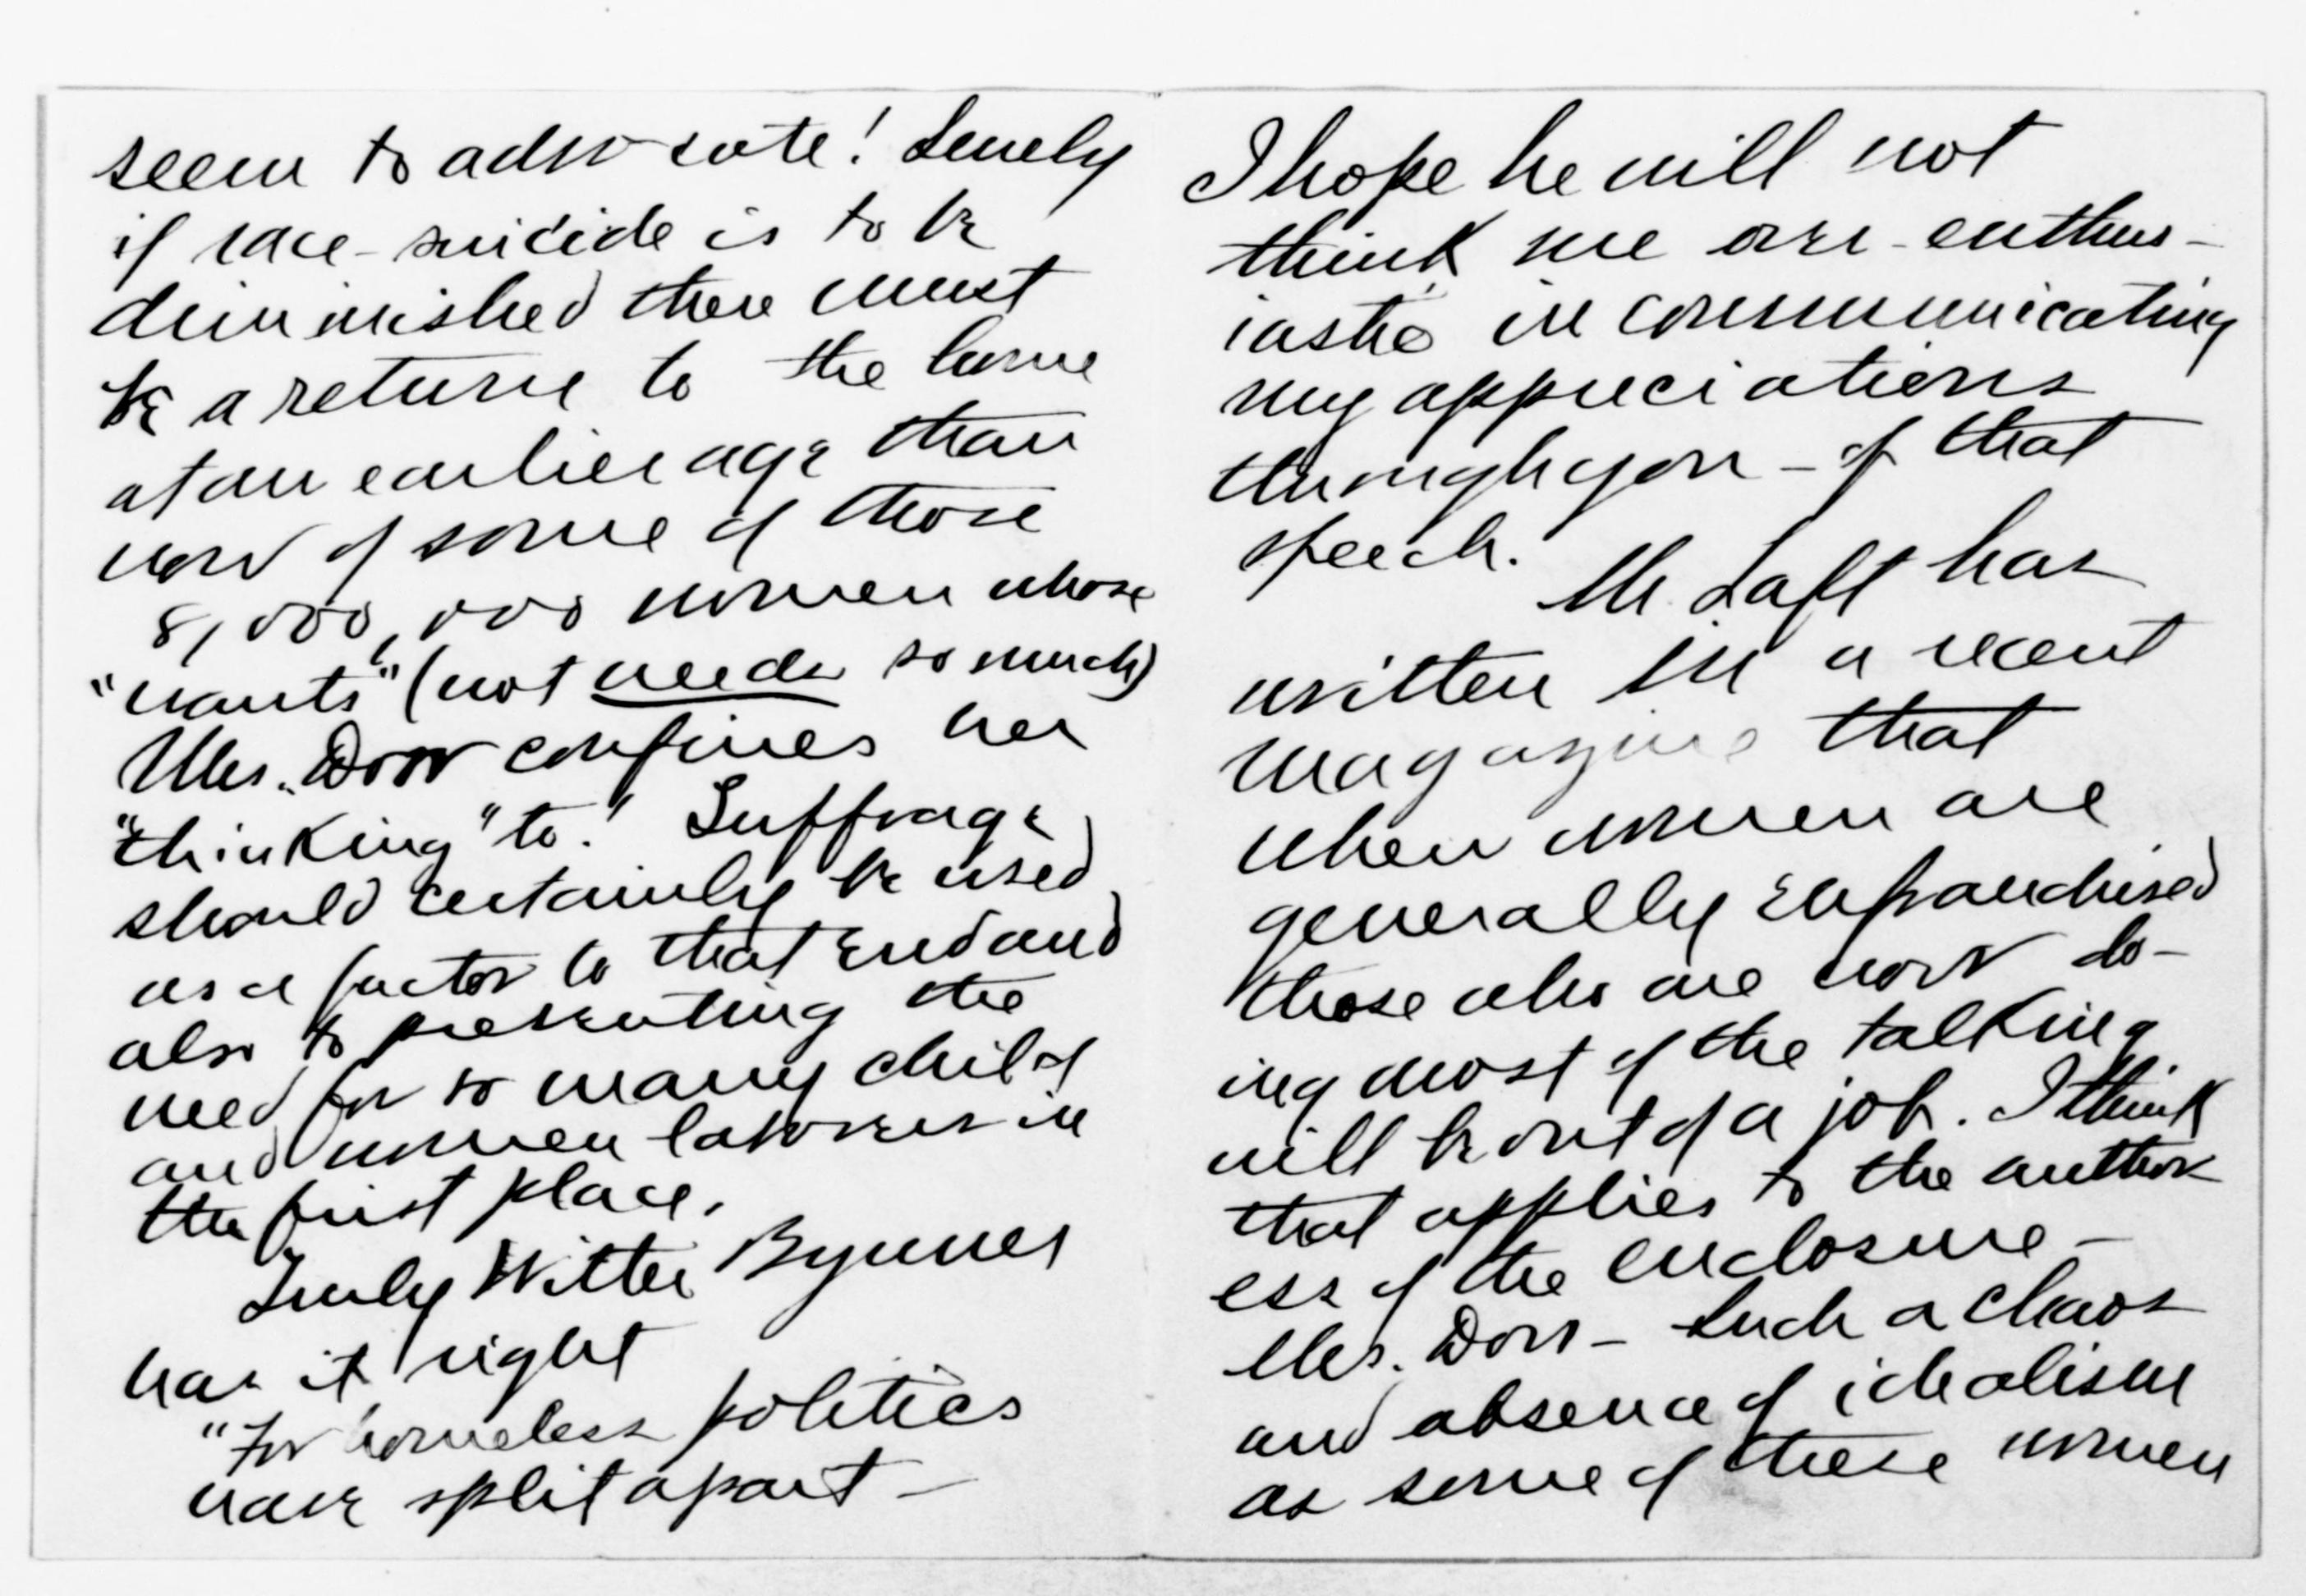 I hope he will not
think me over-enthus-
iastic in communicating
my appreciations
through you - of that
speech.
Mr. Taft has
written in a recent
magazine that
when women are
generally enfranchised
those who are now do-
ing most of the talking
will be out of a job. I think
that applies to the author
ess of the enclosure -
Mrs. Dorr - Such a chaos
and absence of idealism
as some of these women
seem to advocate! Surely
if race-suicide is to be
diminished there must
be a return to the home
at an earlier age than
now of some of those
8,000,000 women whose
"wants" (not needs so much)
Mrs. Dorr confines her
"thinking" to! Suffrage
should certainly be used
as a factor to that end and
also to preventing the
need for so many child
and women laborers in
the first place.
Truly Witter Bynner
has it right
"For homeless politics
have split apart -